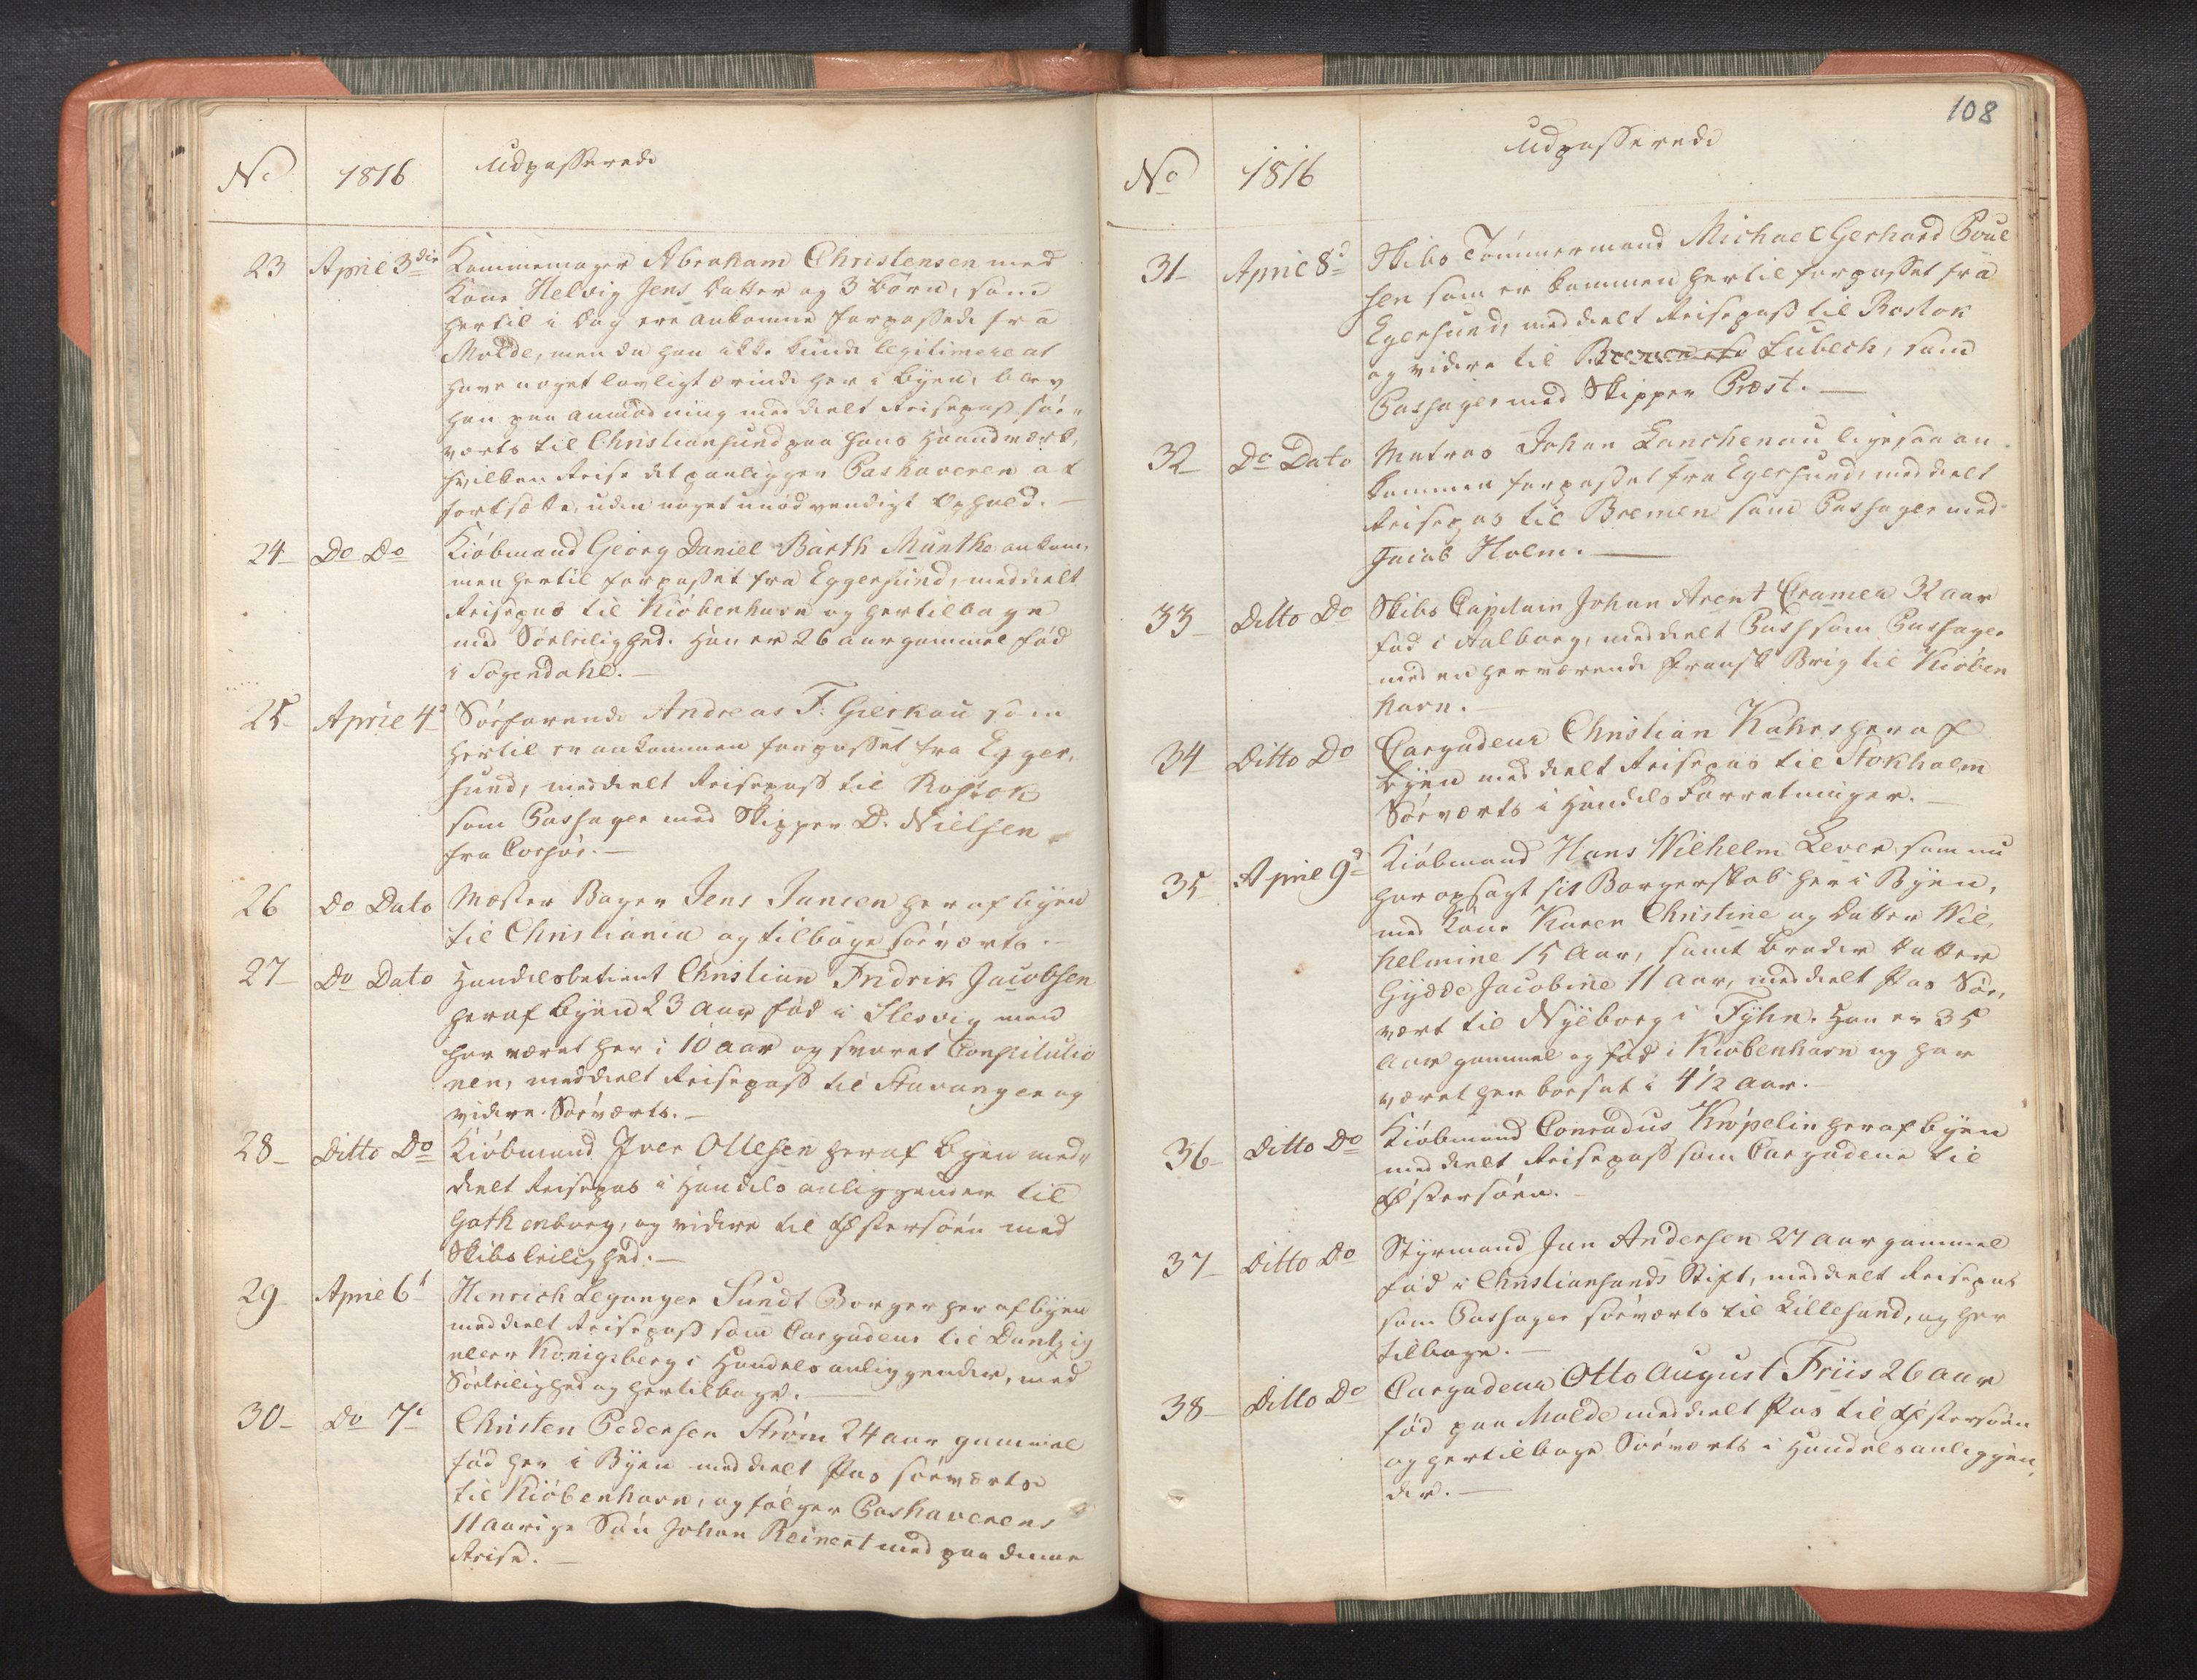 No 1816 Udpasserede
23 April 3die Kammemager Abraham Christensen med
Kone Helvig Jens Datter og 3 Börn, som
hertil i Dag ere ankomne forpassede fra
Molde, men da han ikke kunde legitimere at
have noget lovligt Ærinde her i Byen, blev
han paa anmodning meddeelt Reisepas söe-
værts til Christiansund paa hans Haandværk,
hvilken Reise det paaligger Pashaveren at
fortsætte, uden noget unödvendigt Ophold. —
24 Do Do Kiöbmand Georg Daniel Barth Munthe ankom-
men hertil forpasset fra Eggersund, meddeelt
Reisepas til Kiöbenhavn og hertilbage
med Söeleilighed. Han er 26 aar gammel föd
i Sogendahl. —
25 April 4d Söefarende Andreas F. Gierkau som
hertil er ankommen forpasset fra Egger,
sund, meddeelt Reisepass til Rostok
som Passager med Skipper D. Nielsen
fra Corsör. —
26 Do Dato Mester Bager Jens Jansen her af byen
til Christiania og tilbage söeværts. —
27 Do Dato Handelsbetient Christian Fridrik Jacobsen
her af byen 23 Aar föd i Slesvig men
har været her i 10 Aar og svoret Constitutio
nen, meddeelt Reisepass til Stavanger og
videre Söeværts. —
28 Ditto Do Kiöbmand Iver Ollesen her af Byen med-
deelt Reisepas i Handels anliggender til
Gothenborg, og videre til Östersöen med
Skibsleilighed. —
29 April 6t Henrich Leganger Sundt Borger her af byen
meddeelt Reisepass som Cargadeur til Dantzig
eller Königsberg i Handels anliggender, med
Söeleilighed og hertilbage. —
30 Do 7d Christen Pedersen Ström 24 aar gammel
föd her i Byen meddeelt Pas söeværts
til Kiöbenhavn, og fölger Pashaverens
11 aarige Sön Johan Reinert med paa denne
Reise. —
108
No 1816 Udpasserede
31 April 8d Skibs Tömmermand Michael Gerhard Poul
sen som er kommen hertil forpasset fra
Egersund, meddeelt Reisepass til Rostok
og videre til Bremen Lubech, som
Passager med Skipper Præst. —
32 Do Dato Matros Johan Lanchenau ligesaa an
kommen forpasset fra Egersund, meddeelt
Reisepas til Bremen som Passager med
Jacob Holm. —
33 Ditto Do Skibs Capitain Johan Arent Cramer 32 aar
föd i Aalborg, meddeelt Pass som Passager
med en herværende Fransk Brig til Kiöben
havn. —
34 Ditto Do Cargadeur Christian Kahrs her af
byen meddeelt Reisepas til Stokholm
Söeværts i Handels Forretninger. —
35 April 9d Kiöbmand Hans Wilhelm Lever som nu
har opsagt sit Borgerskab her i Byen,
med Kone Karen Christine og Datter Wil,
helmine 15 Aar, samt broder Datter
Gydde Jacobine 11 aar, meddeelt Pas Söe,
vært til Nyeborg i Fyhn. Han er 35
aar gammel og föd i Kiöbenhavn og har
været her boesat i 4 1/2 Aar. —
36 Ditto Do Kiöbmand Conradus Kröpelin her af byen
meddeelt Reisepass som Cargadeur til
Östersöen. —
37 Ditto Do Styrmand Jan Andersen 27 aar gammel
föd i Christiansands Stift, meddeelt Reisepas
som Passager söeværts til Lillesand, og her
tilbage. —
38 Ditto Do Cargadeur Otto August Friis 26 aar
föd paa Molde meddeelt Pas til Östersöen
og hertilbage Söeværts i Handels anliggen,
der. —